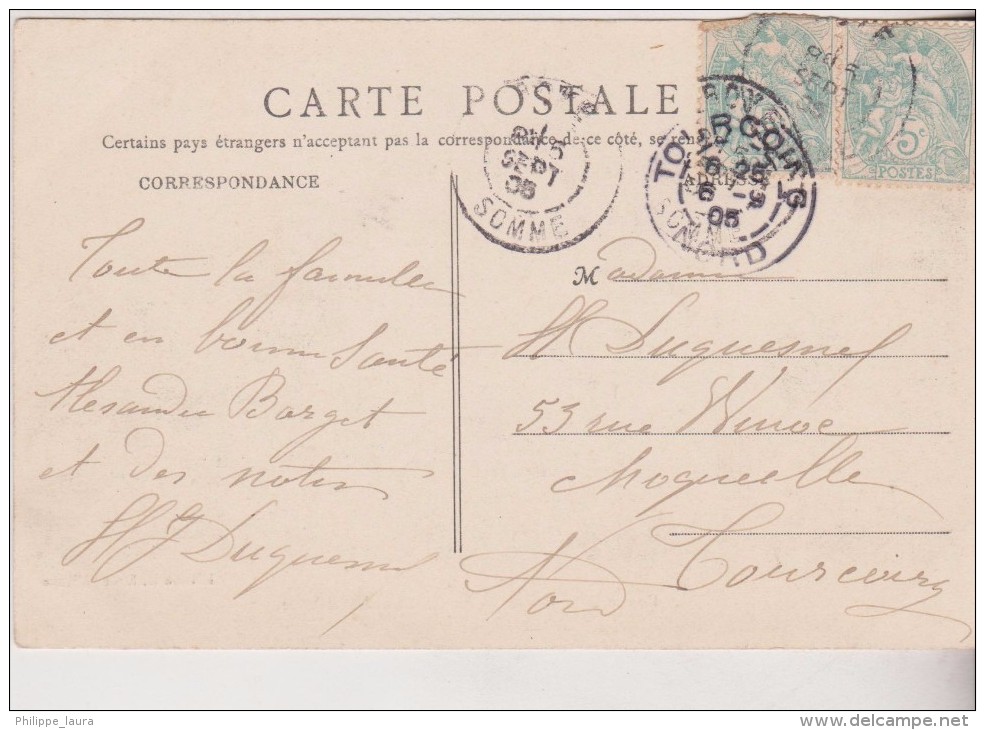 CARTE POSTALE
Certains pays étrangers n'acceptant pas la correspondance de ce côté, se
CORRESPONDANCE
ADRESSE
SEPT
05
SOMME
TO G
05
NORD
5c
POSTES
Toute la famille
et en bonne Santé
Alexandre Barget
et des notres
H J Duquesnel
M adame
H Duquesnel
53 rue Winoc
Choqueelle
Tourcoing
Nord
Philippe_laura
www.delcampe.net